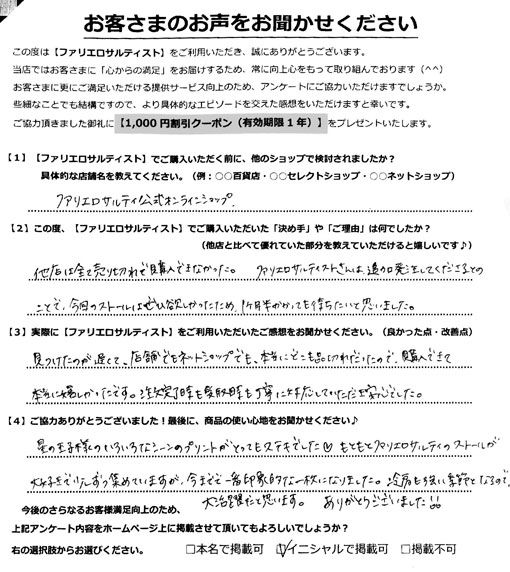 お客さまのお声をお聞かせください
この度は【ファリエロサルティスト】をご利用いただき、誠にありがとうございます。
当店ではお客さまに「心からの満足」をお届けするため、常に向上心をもって取り組んでおります(^^)
お客さまに更にご満足いただける提供サービス向上のため、アンケートにご協力いただけますでしょうか。
些細なことでも結構ですので、より具体的なエピソードを交えた感想をいただけますと幸いです。
ご協力頂きました御礼に【1,000円割引クーポン(有効期限1年)】をプレゼントいたします。
【1】【ファリエロサルティスト】でご購入いただく前に、他のショップで検討されましたか?
具体的な店舗名を教えてください。(例:○○百貨店・○○セレクトショップ・○○ネットショップ)
ファリエロサルティ公式オンラインショップ.
【2】この度、【ファリエロサルティスト】でご購入いただいた「決め手」や「ご理由」は何でしたか?
(他店と比べて優れていた部分を教えていただけると嬉しいです♪)
他店は全て売り切れで購入できなかった。 ファリエロサルティストさんは、追加発注をしてくださるとの
ことで、今回のストールはぜひ欲しかったため、1ヶ月半かかっても待ちたいと思いました。
【3】実際に【ファリエロサルティスト】をご利用をいただいたご感想をお聞かせください。(良かった点・改善点)
見つけたのが遅くて、店舗でもネットショップでも、本当にどこも品切れだったので、購入できて
本当に嬉しかったです。注文完了時も受取時も丁寧に対応していただき安心でした。
【4】ご協力ありがとうございました!最後に、商品の使い心地をお聞かせください♪
星の王子様のいろいろなシーンのプリントがとってもステキでした♡ もともとファリエロサルティのストールが
大好きで少しずつ集めていますが、今までで一番印象的な一枚になりました。冷房も強い季節となるので、
大活躍だと思います。 ありがとうございました!!
今後のさらなるお客様満足向上のため、
上記アンケート内容をホームページ上に掲載させて頂いてもよろしいでしょうか?
右の選択肢からお選びください。 □本名で掲載可 ☑イニシャルで掲載可 □掲載不可